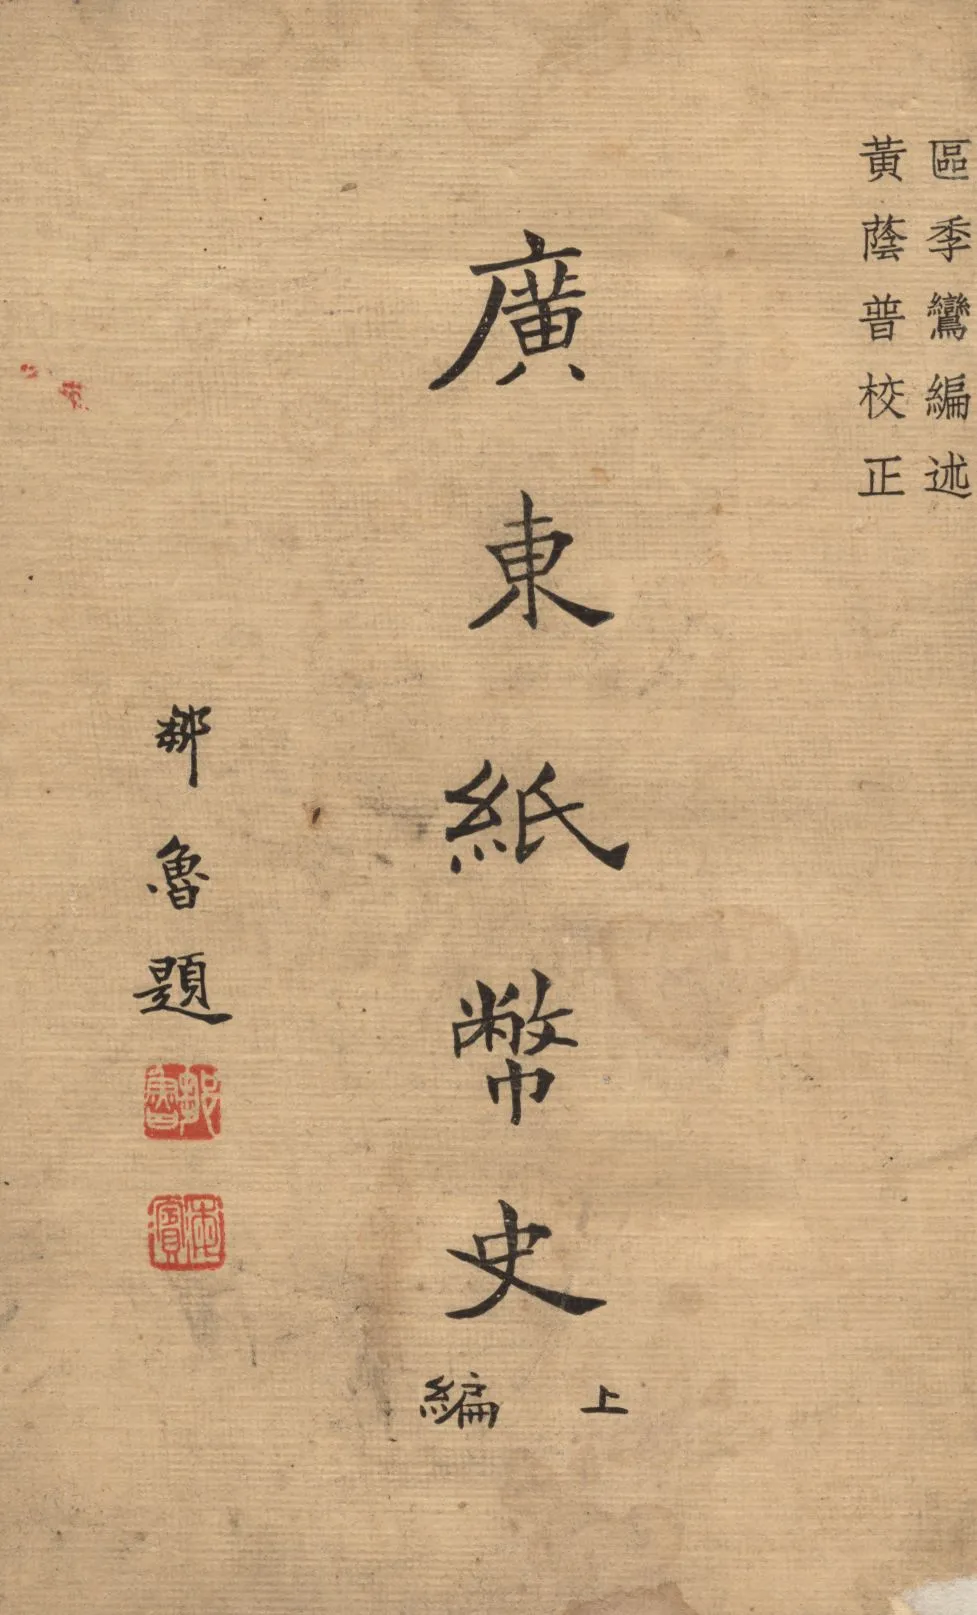 區季鸞編述
黃蔭普校正
廣東紙幣史
上編
鄒魯題
鄒魯
海濱